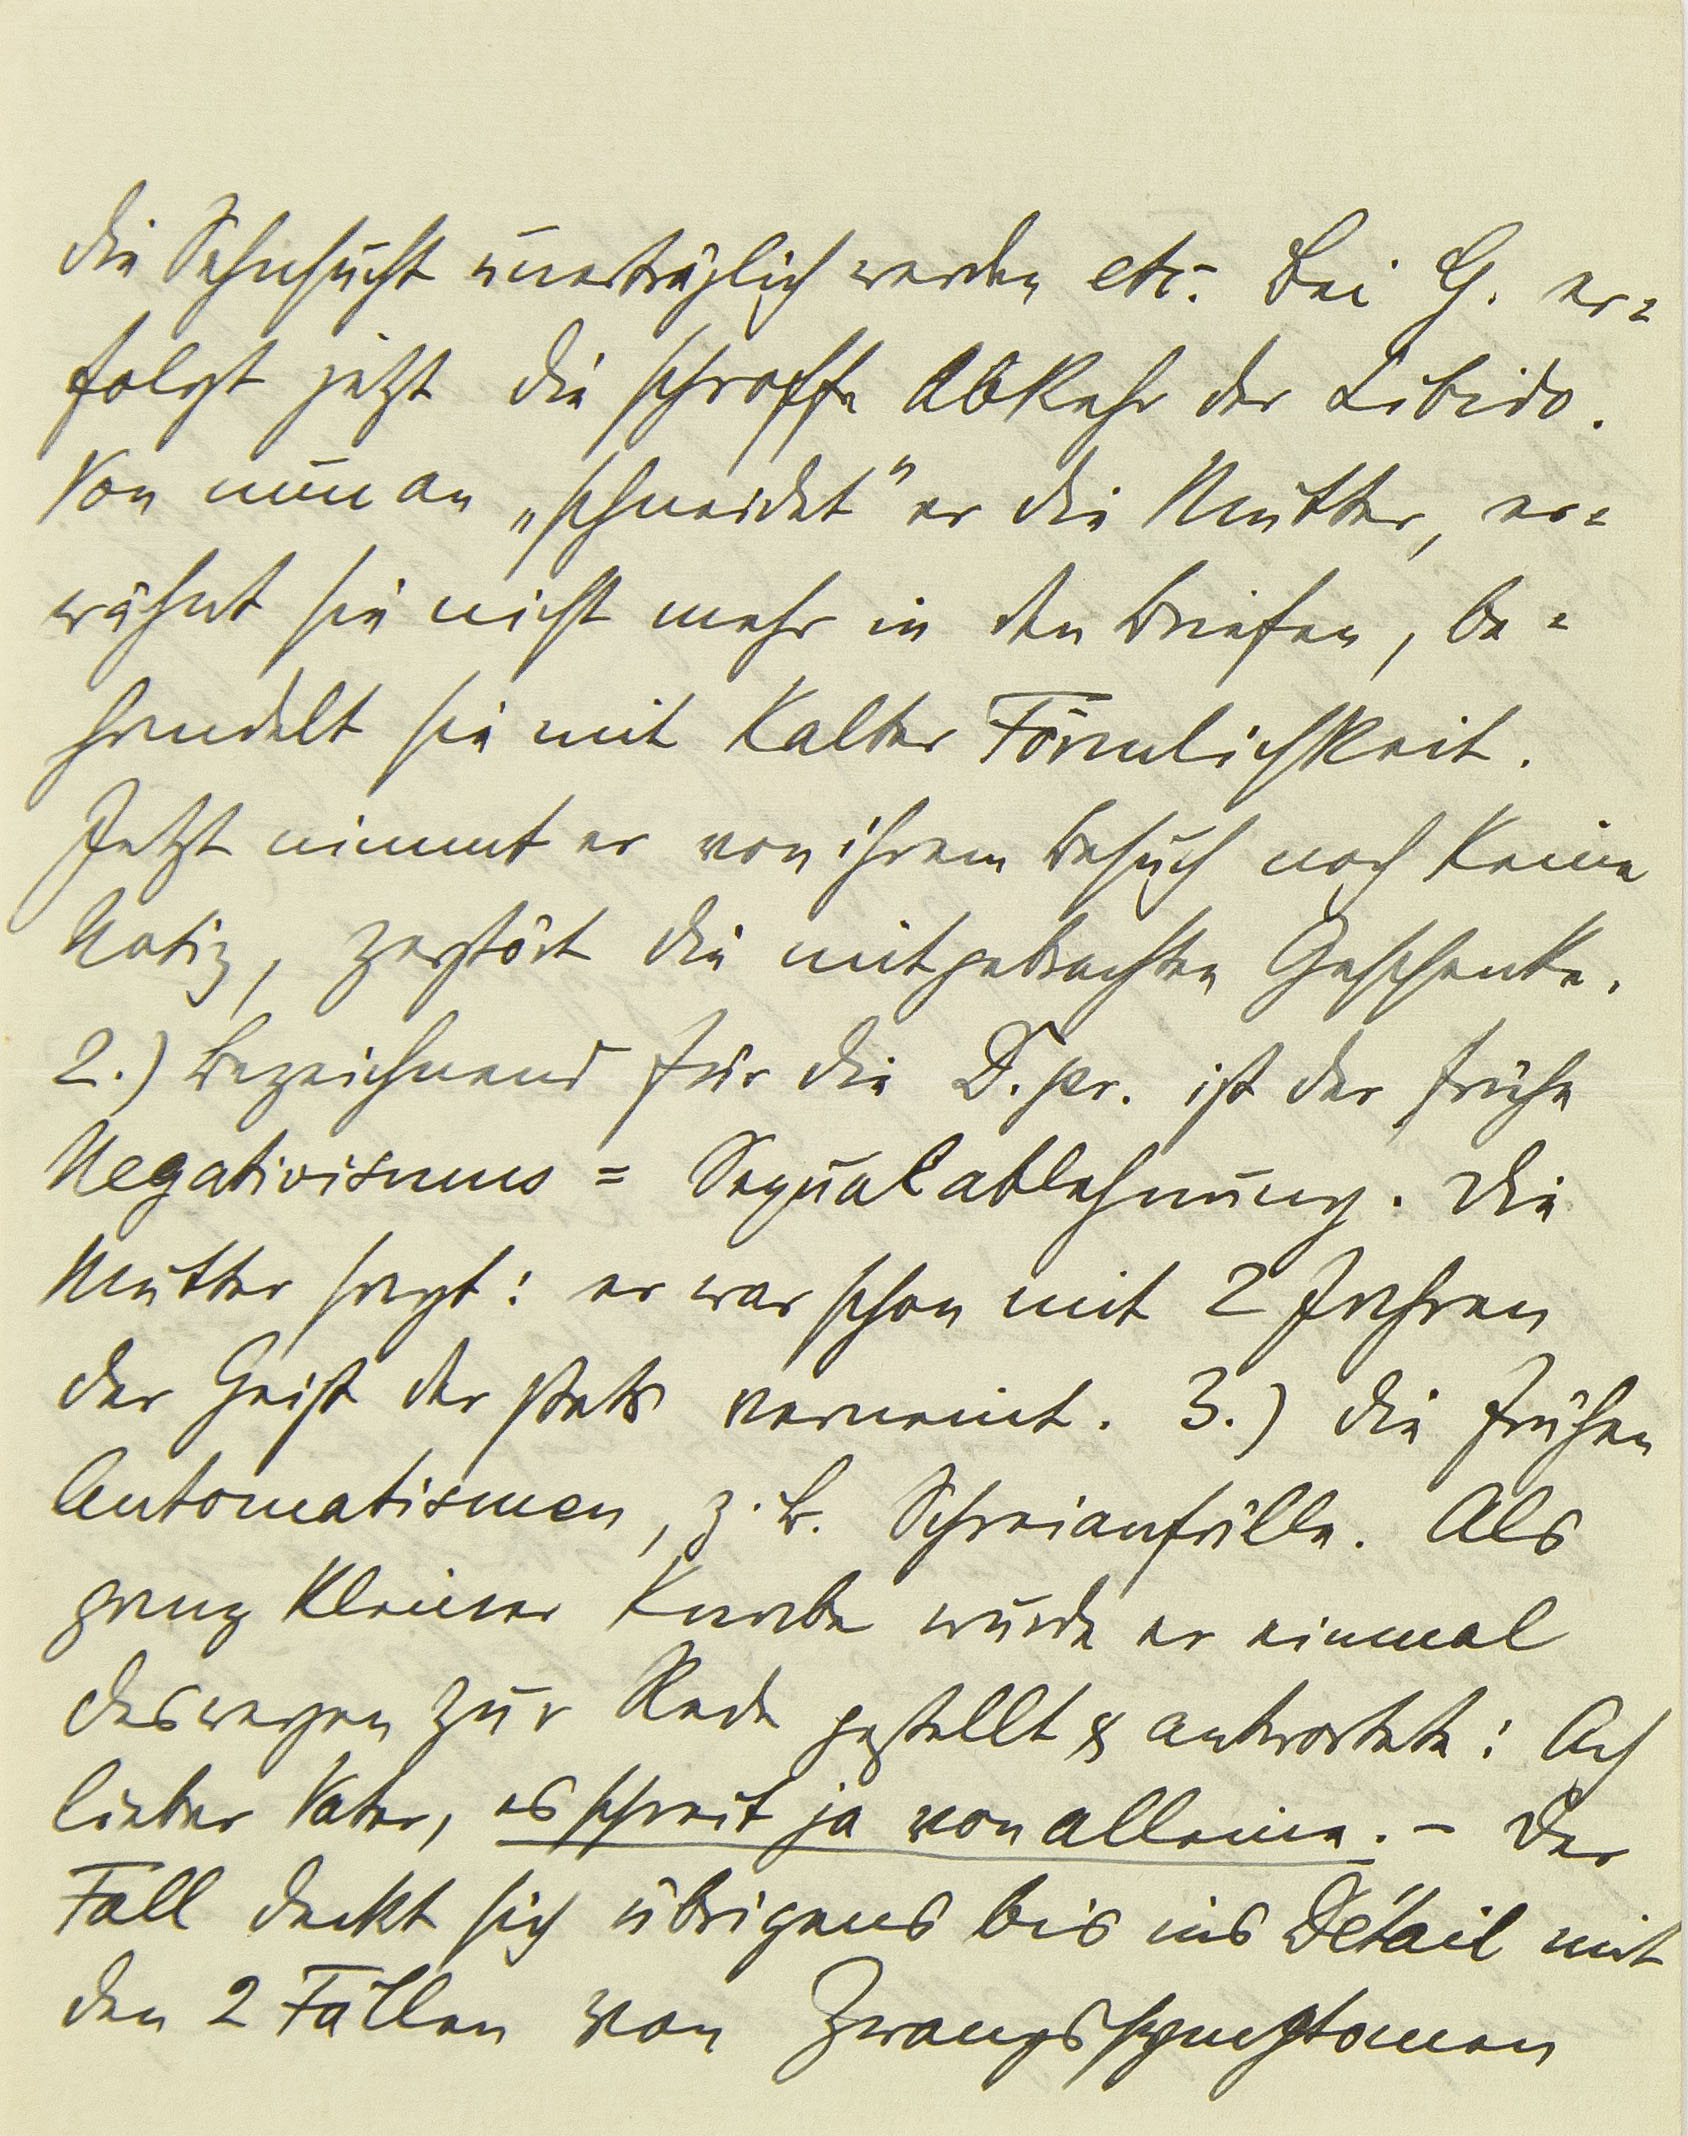 die Sehnsucht unerträglich werden etc. Bei G. er=
folgt jetzt die schroffe Abkehr der Libido.
Von nun an „schneidet" er die Mutter, er=
wähnt sie nicht mehr in den Briefen, be=
handelt sie mit kalter Förmlichkeit.
Jetzt nimmt er von ihrem Besuch noch keine
Notiz, zerstört die mitgebrachten Geschenke.
2.) Bezeichnend für die D. pr. ist der frühe
Negativismus = Sexualablehnung. Die
Mutter sagt: er war schon mit 2 Jahren
der Geist der stets verneint. 3.) die frühen
Automatismen, z. B. Schreianfälle. Als
ganz kleiner Knabe wurde er einmal
deswegen zur Rede gestellt & antwortete: Ach
lieber Vater, es schreit ja von alleine. – Der
Fall deckt sich übrigens bis ins Détail mit
den 2 Fällen von Zwangssymptomen